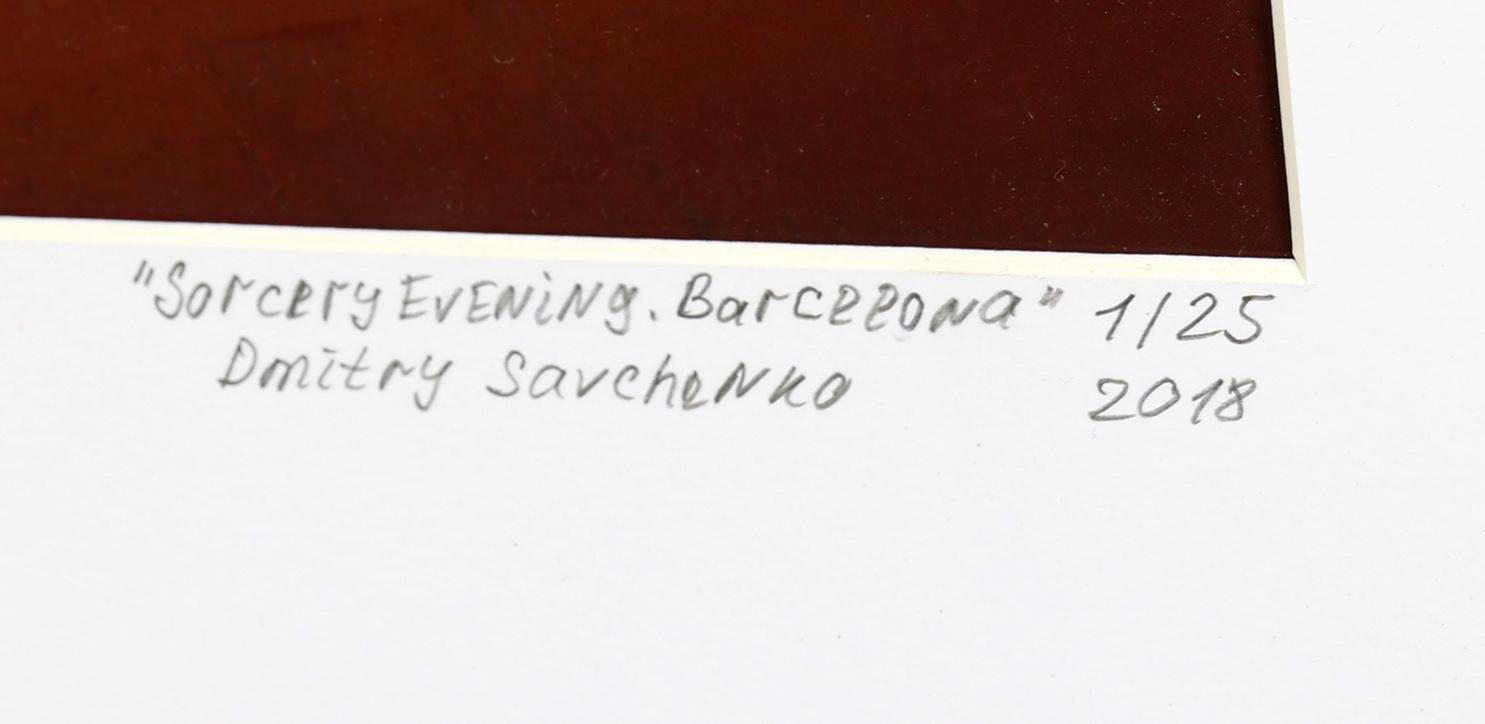 "Sorcery Evening. Barcelona" 1/25
Dmitry Savchenko 2018